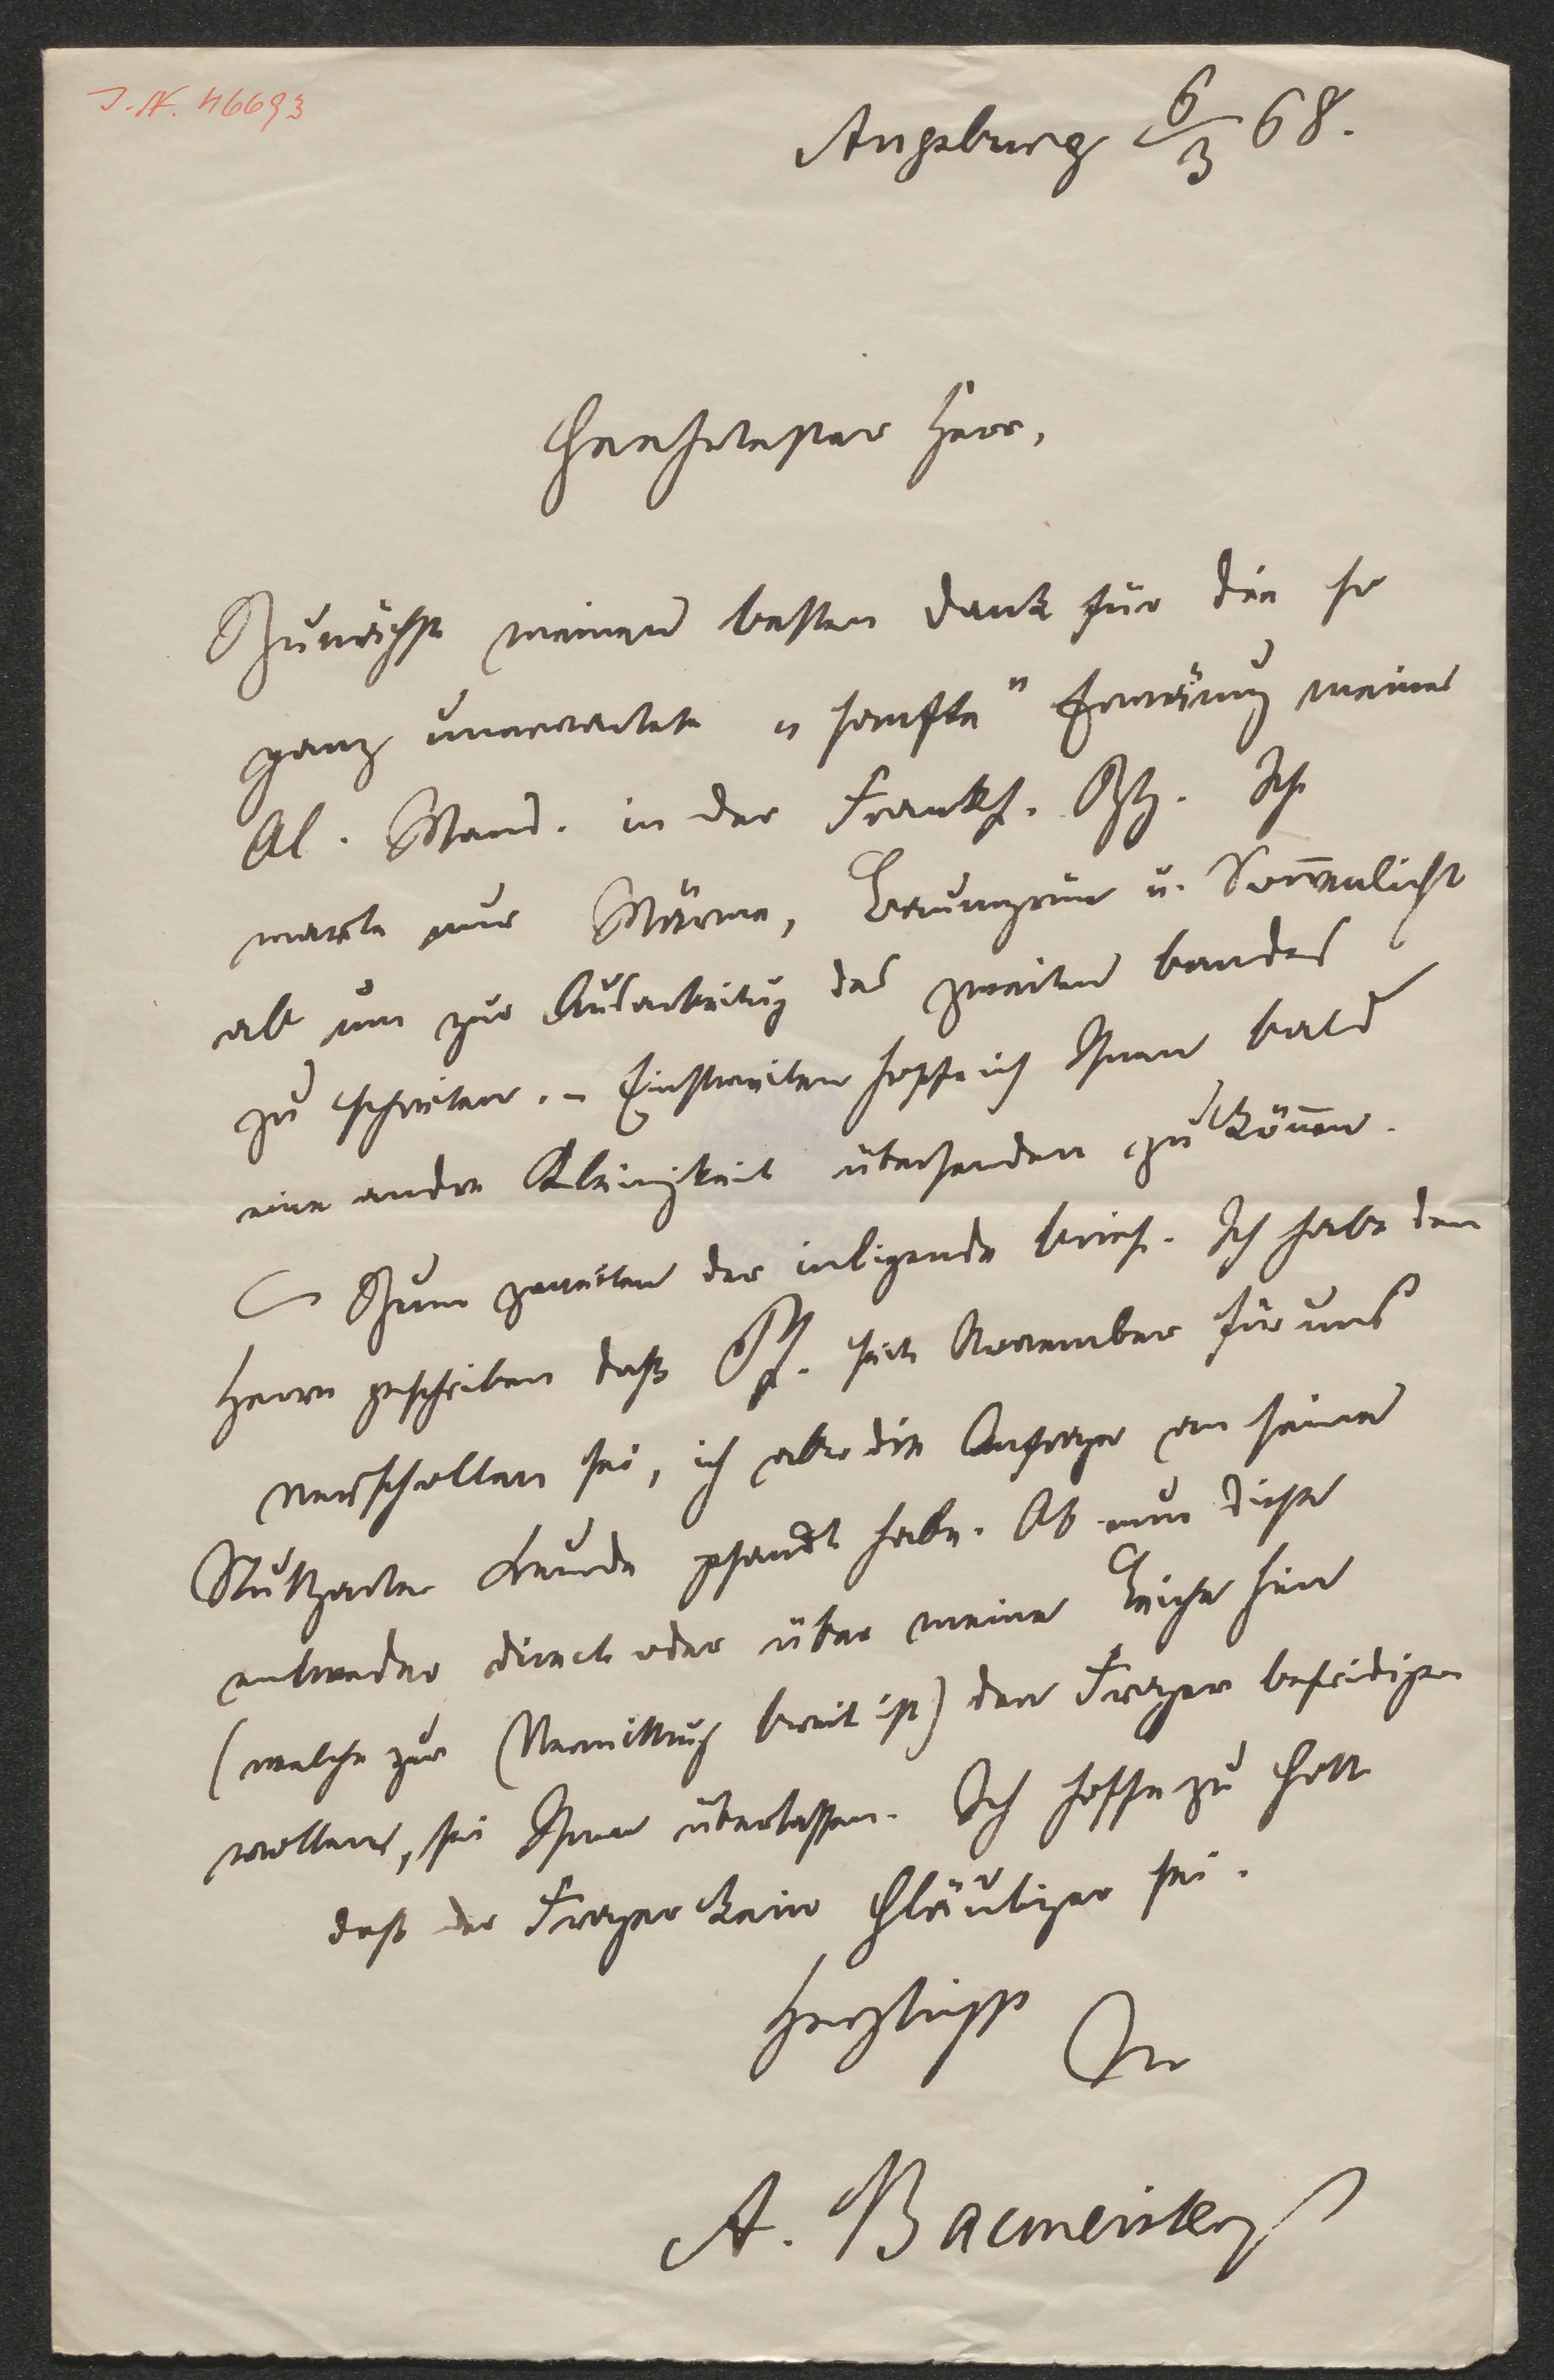 J. N. 46693
Augsburg 6/3 68.
Geehrtester Herr,
Zunächst meinen besten Dank für die so
ganz unerwartete „sanfte" Erwänung meiner
Al. Wand. in der Frankf. Ztg. Ich
warte nur Wärme, Baumgrün u. Sonnenlicht
ab um zur Ausarbeitug des zweiten bandes
zu schreiten. – Einstweilen hoffe ich Ihnen bald
eine andre Kleinigkeit übersenden zu können.
Zum zweiten der inligende brief. Ich habe dem
Herrn geschriben daß Pf. seit November für uns
verschollen sei, ich aber die Anfrage an seine
Stuttgarter freunde gesandt habe. Ob nun diese
entweder direct oder über meine Leiche hin
(welche zur Vermittlug bereit ist) den Frager befridigen
wollen, sei Ihnen überlassen. Ich hoffe zu Gott
daß der Frager kein Gläubiger sei.
Herzlichst
Ihr
A. Bacmeister